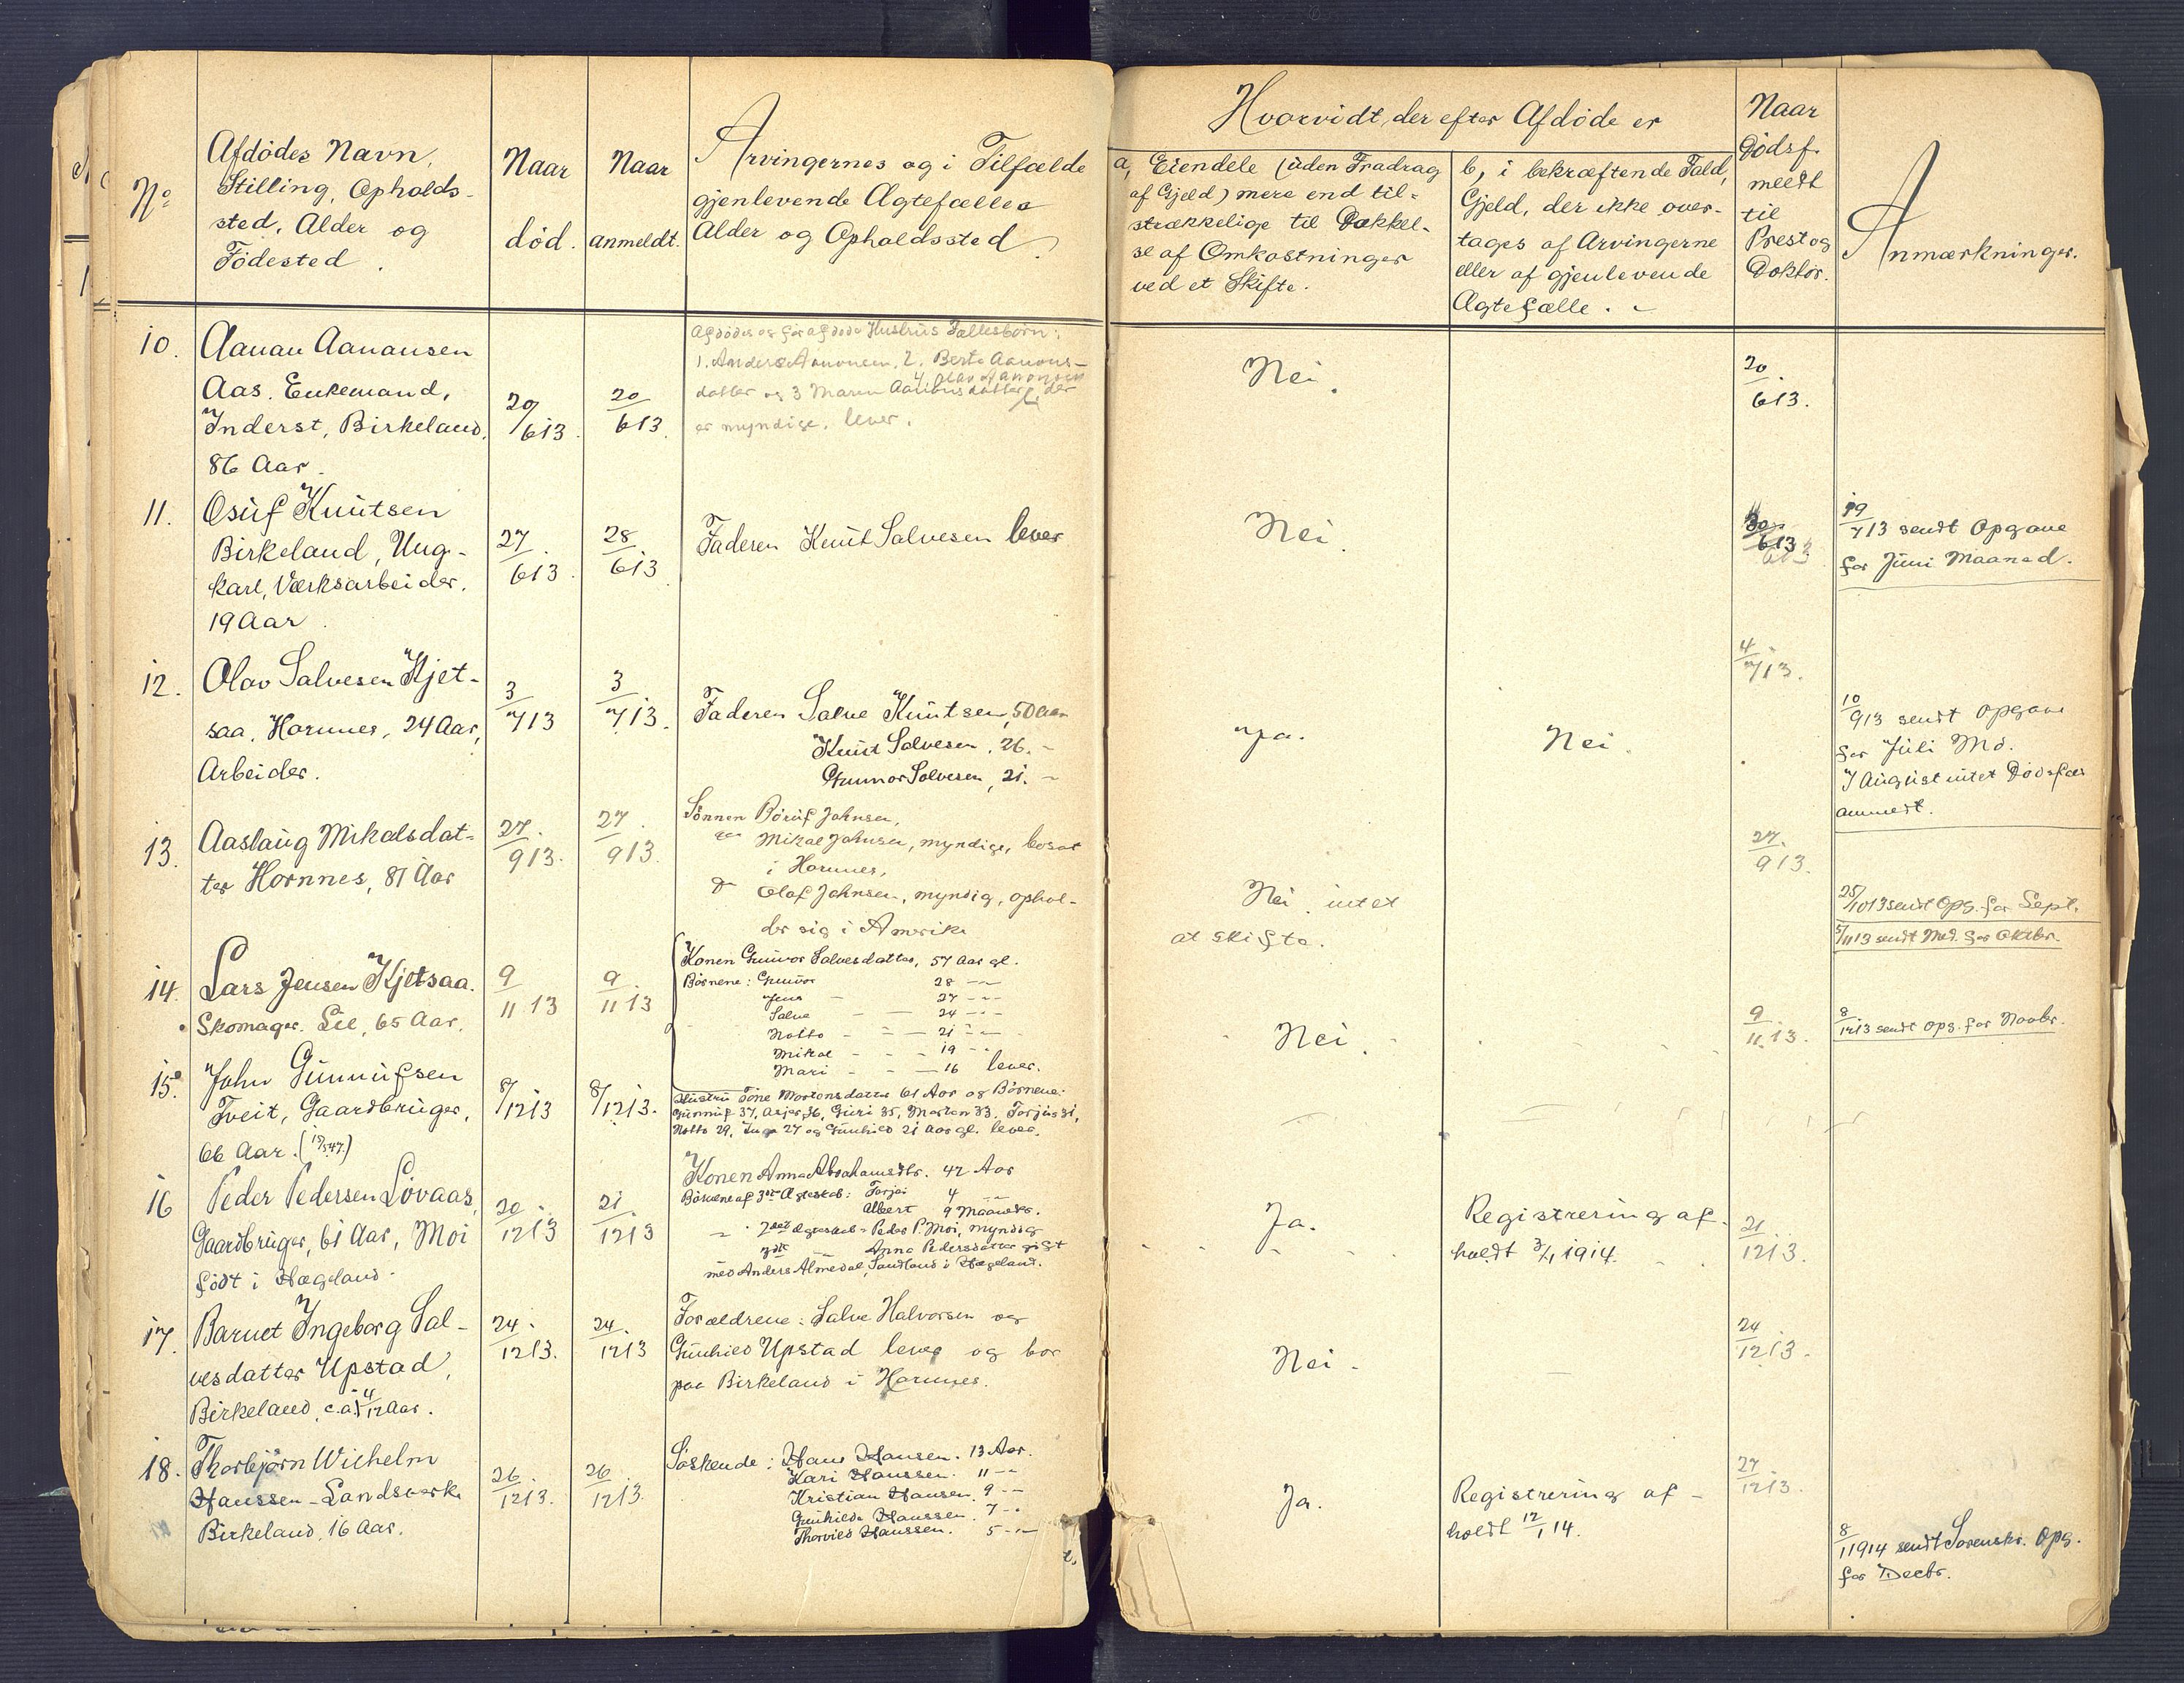 No
Afdödes Navn,
Stilling, Opholds-
sted, Alder og
Födested.
Naar
död.
Naar
anmeldt.
Arvingernes og i Tilfælde
gjenlevende Ægtefælles
Alder og Opholdssted.
Hvorvidt der efter Afdöde er
a, Eiendele (uden Fradrag
af Gjeld) mere end til-
strækkelige til Dækkel-
se af Omkostninger
ved et Skifte.
b, i bekræftende Fald,
Gjeld, der ikke over-
tages af Arvingerne
eller af gjenlevende
Ægtefælle.
Naar
Dödsf.
meldt
til
Prest og
Doktor.
Anmærkninger.
10. Aanau Aanausen
Aas. Enkemand,
Inderst, Birkeland,
86 Aar.
20/6 13.
20/6 13
Afdödes og för afdöde Hustrus Fællesbörn:
1. Anders Aanonsen, 2. Berte Aanons-
4. Olav Aanonsen
datter og 3 Maren Aanonsdatter, der
er myndige, lever.
Nei.
20/6 13.
11. Osuf Knutsen
Birkeland, Ung-
karl, Værksarbeider.
19 Aar.
27/6 13.
28/6 13
Faderen Knut Salvesen lever
Nei.
30/6 13
19/7 13 sendt Opgave
for Juni Maaned.
12. Olav Salvesen Kjet-
saa, Hornnes, 24 Aar,
Arbeider.
3/7 13
3/7 13.
Faderen Salve Knutsen, 50 Aar
Knut Salvesen, 26. -
Gunnar Salvesen, 21. -
Ja.
Nei.
4/7 13.
10/9 13 sendt Opgave
for Juli Md.
I August intet Dödsfal
anmeldt.
13. Aaslaug Mikalsdat-
ter Hornnes, 81 Aar
27/9 13.
27/9 13.
Sönnen Böruf Johnsen,
Mikal Johnsen, myndige, bosat
i Hornnes,
Olaf Johnsen, myndig, ophol-
der sig i Amerika
Nei, intet
at skifte.
27/9 13.
25/10 13 sendt Opg. for Sept.
5/11 13 sendt Med. for Oktbr.
14. Lars Jensen Kjetsaa.
Skomager. Lie, 65 Aar.
9/11 13
9/11 13
Konen Gunvor Salvesdatter, 57 Aar gl.
Börnene: Gunvor 28 --
Jens - 27 ---
Salve - - 24 ---
Notto - - 21 --
Mikal - - 19 --
Mari - - 16 lever.
Nei.
9/11 13.
8/12 13 sendt Opg. for Novbr.
15. John Gunnufsen
Tveit, Gaardbruger,
66 Aar. (19/5 47.)
8/12 13
8/12 13.
Hustru Tone Mortensdatter 61 Aar og Börnene:
Gunnuf 37, Asjer 36, Guri 35, Morten 33, Torjus 31,
Notto 29, Inga 27 og Gunhild 21 Aar gl. lever.
16 Peder Pedersen Lövaas,
Gaardbruger, 61 Aar, Moi
födt i Hægeland.
20/12 13
21/12 13
Konen Anna Abrahamsdtr. 42 Aar
Börnene af 3die Ægteskab: Torjei 4 --
Albert 9 Maaneder.
- 2det Ægteskab - Peder P. Moi, myndig
Anna Pedersdatter gift
med Anders Almedal, Sandland i Hægeland.
Ja.
Registrering af-
holdt 3/1 1914.
21/12 13.
17. Barnet Ingeborg Sal-
vesdatter Upstad,
Birkeland, c.a. 4/12 Aar.
24/12 13.
24/12 13
Forældrene: Salve Halvorsen og
Gunhild Upstad lever og bor
paa Birkeland i Hornnes.
Nei.
24/12 13.
18. Thorbjörn Wilhelm
Hanssen - Landsverk
Birkeland, 16 Aar.
26/12 13.
26/12 13.
Söskende: Hans Hansen. 13 Aar.
Kari Hanssen. 11 --
Kristian Hansen. 9 --
Gunhilda Hanssen. 7 --
Thorvild Hanssen. 5 --
Ja.
Registrering af-
holdt 12/1 14.
27/12 13.
8/1 1914 sendt Sorenskr. Opg.
for Decbr.